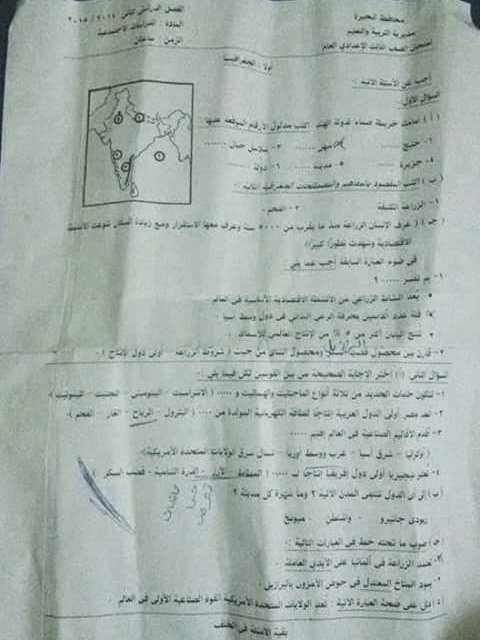 محافظة البحيرة
مديرية التربية والتعليم
امتحان الصف الثالث الإعدادي العام
الفصل الدراسي الثاني ٢٠١٤ / ٢٠١٥
المادة : الدراسات الاجتماعية
الزمن : ساعتان
أولا : الجغرافيا
أجب عن الأسئلة الآتية :
السؤال الأول :
( أ ) أمامك خريطة صماء لدولة الهند اكتب مدلول الأرقام الموقعة عليها
١- خليج ...... ٢- نهر ...... ٣- سلاسل جبال ......
٤- جزيرة ...... ٥- مدينة ...... ٦- دولة ......
(ب) اكتب المقصود بالمفاهيم والمصطلحات الجغرافية التالية :
١- الزراعة الكثيفة ٢- الفحم .
(جـ) ( عرف الإنسان الزراعة منذ ما يقرب من ٥٠٠٠ سنة وعرف معها الاستقرار ومع زيادة السكان تنوعت الأنشطة
الاقتصادية وشهدت تطورا كبيرا)
فى ضوء العبارة السابقة أجب عما يلى :
١- بم تفسر ...... ؟
يعد النشاط الزراعي من الأنشطة الاقتصادية الأساسية فى العالم .
قلة عدد العاملين بحرفة الرعي البدائى فى دول وسط آسيا .
تنتج اليابان أكثر من ٥ % من الإنتاج العالمى للأسماك .
٢- قارن بين محصول قصب السكر ومحصول الشاي من حيث ( شروط الزراعة – أولى دول الإنتاج ) .
السؤال الثانى : (أ) اختر الإجابة الصحيحة من بين القوسين لكل فيما يلى :
١- تتكون خامات الحديد من ثلاثة أنواع الماجنتيت والهيماتيت و ..... ( الانتراسيت – البيتومينى – اللجنيت – الليمونيت )
٢- تعد مصر أولى الدول العربية إنتاجا للطاقة الكهربائية المولدة من ..... ( البترول – الرياح – الغاز – الفحم )
٣- أقدم الأقاليم الصناعية فى العالم إقليم .....
( أوكرانيا – شرق آسيا – غرب ووسط أوربا – شمال شرق الولايات المتحدة الأمريكية)
٤- تعتبر نيجيريا أولى دول إفريقيا إنتاجا لـ ..... ( – الأرز – الذرة الشامية – قصب السكر )
(ب) إلى أى الدول تنتمى المدن الآتية ؟ وما شهرة كل مدينة ؟
ريودي جانيرو – واشنطن – ميونخ
(جـ) صوب ما تحته خط فى العبارات التالية :
١- تعتمد الزراعة فى ألمانيا على الأيدى العاملة .
٢- يسود المناخ المعتدل فى حوض الأمازون بالبرازيل .
(د) دلل على صحة العبارة الآتية : تعد الولايات المتحدة الأمريكية القوة الصناعية الأولى فى العالم .
بقية الأسئلة فى الخلف